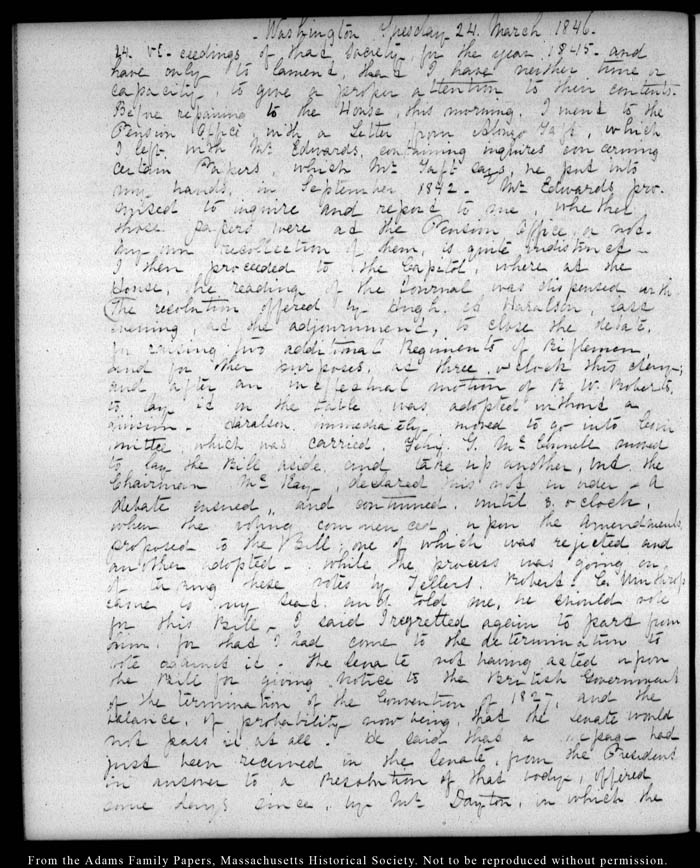 Washington Tuesday 24. March 1846.
24. VI. ceedings of that Society, for the year 1845 and
have only to lament, that I have neither time or
capacity, to give a proper attention to their contents.
Before repairing to the House, this morning, I went to the
Pension Office with a Letter from Alonzo Taft, which
I left with Mr Edwards, containing inquires concerning
certain Papers, which Mr Taft says, he put into
my hands, in September 1842. Mr Edwards pro-
mised to inquire and report to me, whether
those papers were at the Pension Office, or not.
My own recollection of them, is quite indistinct -
I then proceeded to the Capitol, where at the
House, the reading of the Journal was dispensed with.
The resolution offered by Hugh A Haralson, last
evening, at the adjournment, to close the debate,
for raising two additional Regiments of Riflemen,
and for other purposes, at three o'clock this day,
and after an ineffectual motion of R. W. Roberts,
to lay it on the table, was adopted without a
division - Haralson immediately moved to go into Com-
mittee, which was carried. Felix G. McConnell moved
to lay the Bill aside and take up another, but the
Chairman McKay, declared this not in order - A
debate ensued, and continued until 3. o'clock,
when the voting commenced, upon the amendments,
proposed to the Bill; one of which was rejected and
another adopted - While the process was going on,
of taking these votes by Tellers, Robert C. Winthrop
came to my seat and told me, he should vote
for this Bill - I said I regretted again to part from
him, for that I had come to the determination to
vote against it - The Senate not having acted upon
the Bill for giving notice to the British Government
of the termination of the Convention of 1827, and the
balance, of probability now being, that the Senate would
not pass it at all. He said that a message had
just been received in the Senate, from the President
in answer to a Resolution of that body, offered
some days since, by Mr Dayton, in which the
From the Adams Family Papers, Massachusetts Historical Society. Not to be reproduced without permission.